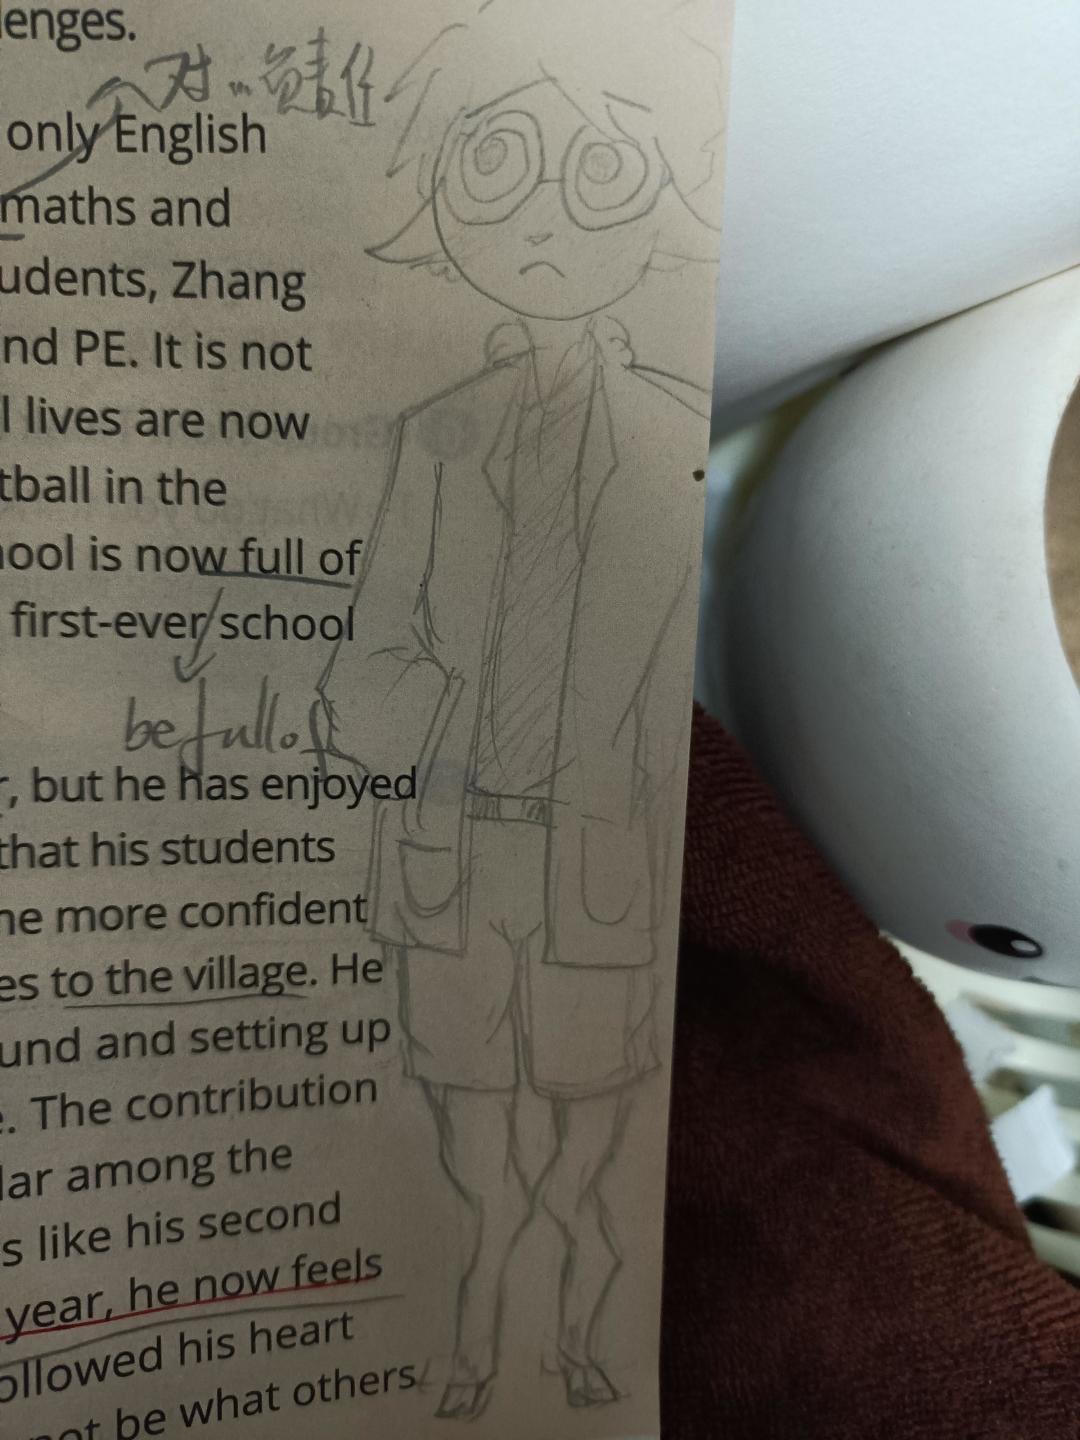 lenges.
对...负责任
only English
maths and
udents, Zhang
nd PE. It is not
l lives are now
tball in the
ool is now full of
first-ever school
be full of
, but he has enjoyed
that his students
ne more confident
es to the village. He
und and setting up
e. The contribution
lar among the
s like his second
year, he now feels
ollowed his heart
not be what others